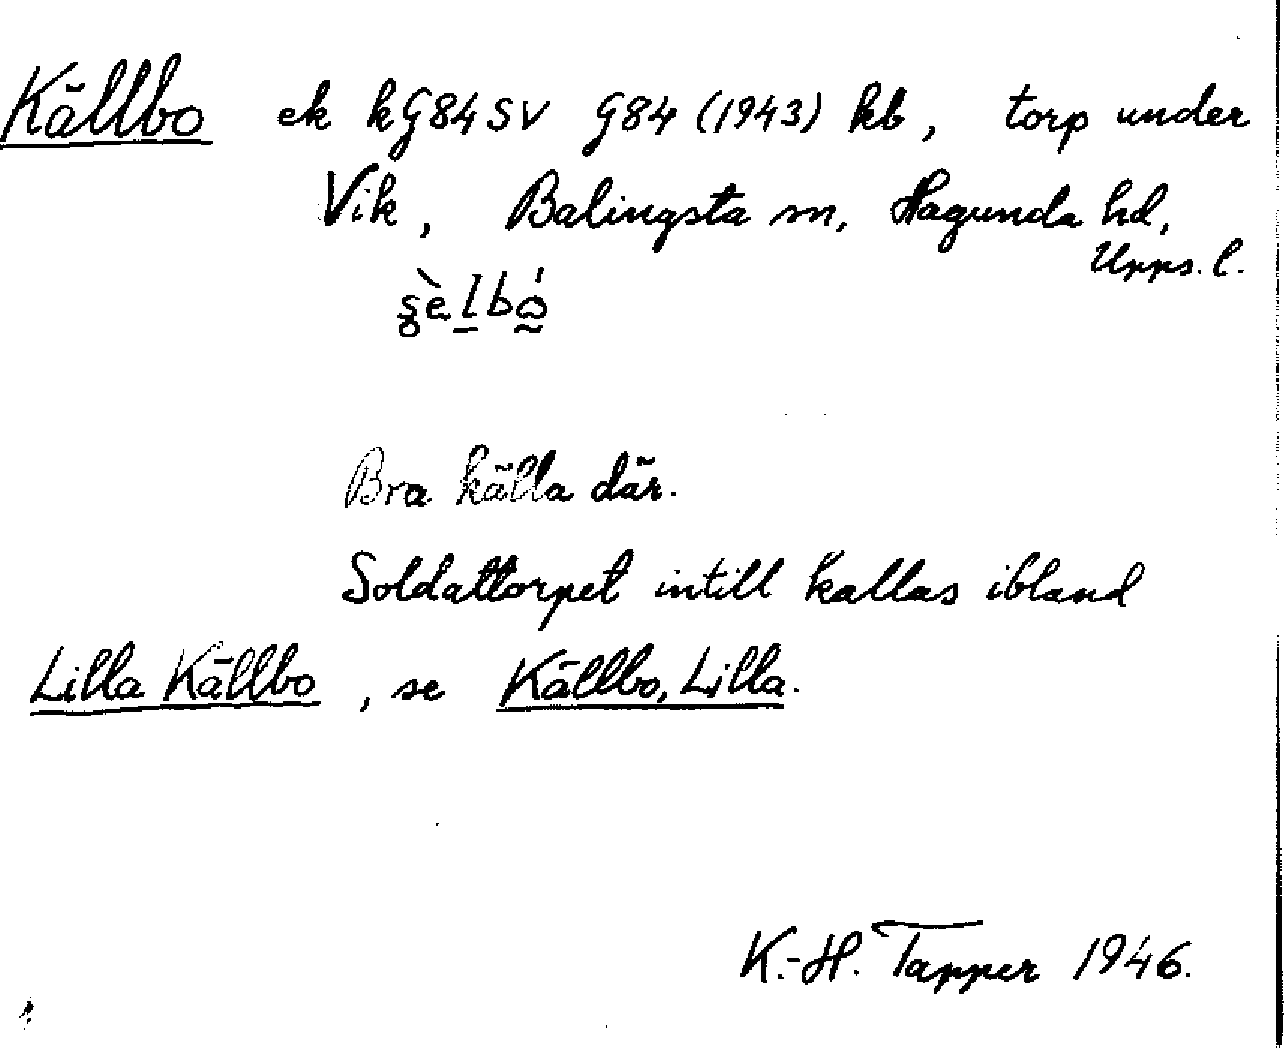 Källbo ek kG84SV G84 (1943) kb, torp under
Vik, Balingsta sn, Hagunda hd,
Upps. l.
Bra källa där.
Soldattorpet intill kallas ibland
Lilla Källbo, se Källbo, Lilla.
K.-H. Tapper 1946.